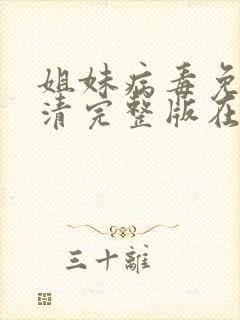 姐妹病毒免
清完整版在
三十離